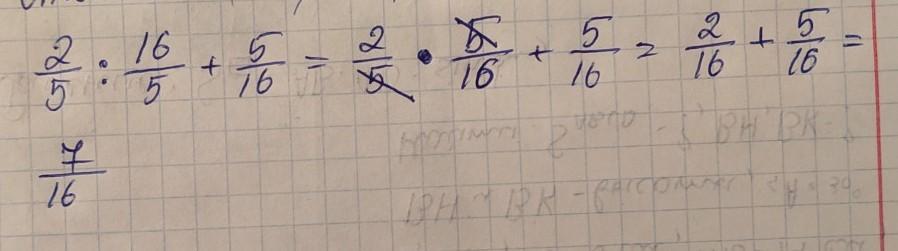 2/5 : 16/5 + 5/16 = 2/5 • 5/16 + 5/16 = 2/16 + 5/16 =
7/16